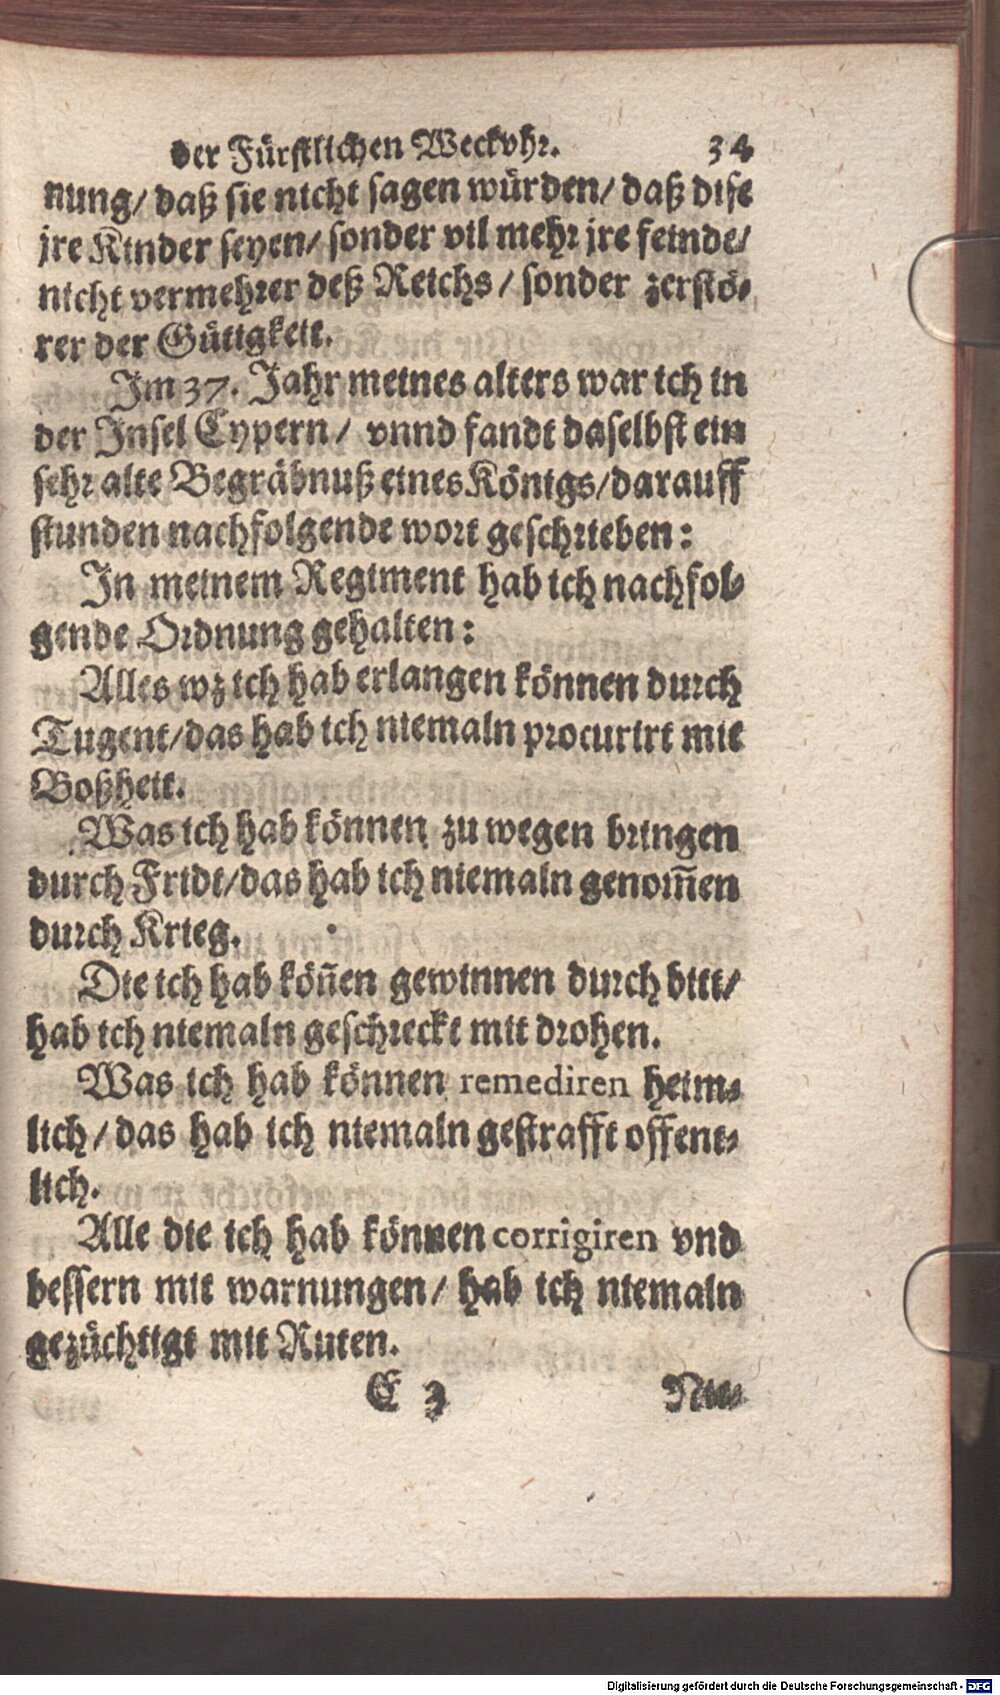 der Fürstlichen Weckvhr. 34
nung/ daß sie nicht sagen würden/ daß dise
jre Kinder seyen/ sonder vil mehr jre feinde/
nicht vermehrer deß Reichs / sonder zerstö-
rer der Gütigkeit.
Im 37. Jahr meines alters war ich in
der Insel Cypern / vnnd fandt daselbst ein
sehr alte Begräbnuß eines Königs/darauff
stunden nachfolgende wort geschrieben:
In meinem Regiment hab ich nachfol-
gende Ordnung gehalten:
Alles wz ich hab erlangen können durch
Tugent/das hab ich niemaln procurirt mit
Boßheit.
Was ich hab können zu wegen bringen
durch Fridt/das hab ich niemaln genom̃en
durch Krieg.
Die ich hab köñen gewinnen durch bitt/
hab ich niemaln geschreckt mit drohen.
Was ich hab können remediren heim-
lich / das hab ich niemaln gestrafft offent-
lich.
Alle die ich hab können corrigiren vnd
bessern mit warnungen / hab ich niemaln
gezüchtigt mit Ruten.
E 3
Digitalisierung gefördert durch die Deutsche Forschungsgemeinschaft - DFG